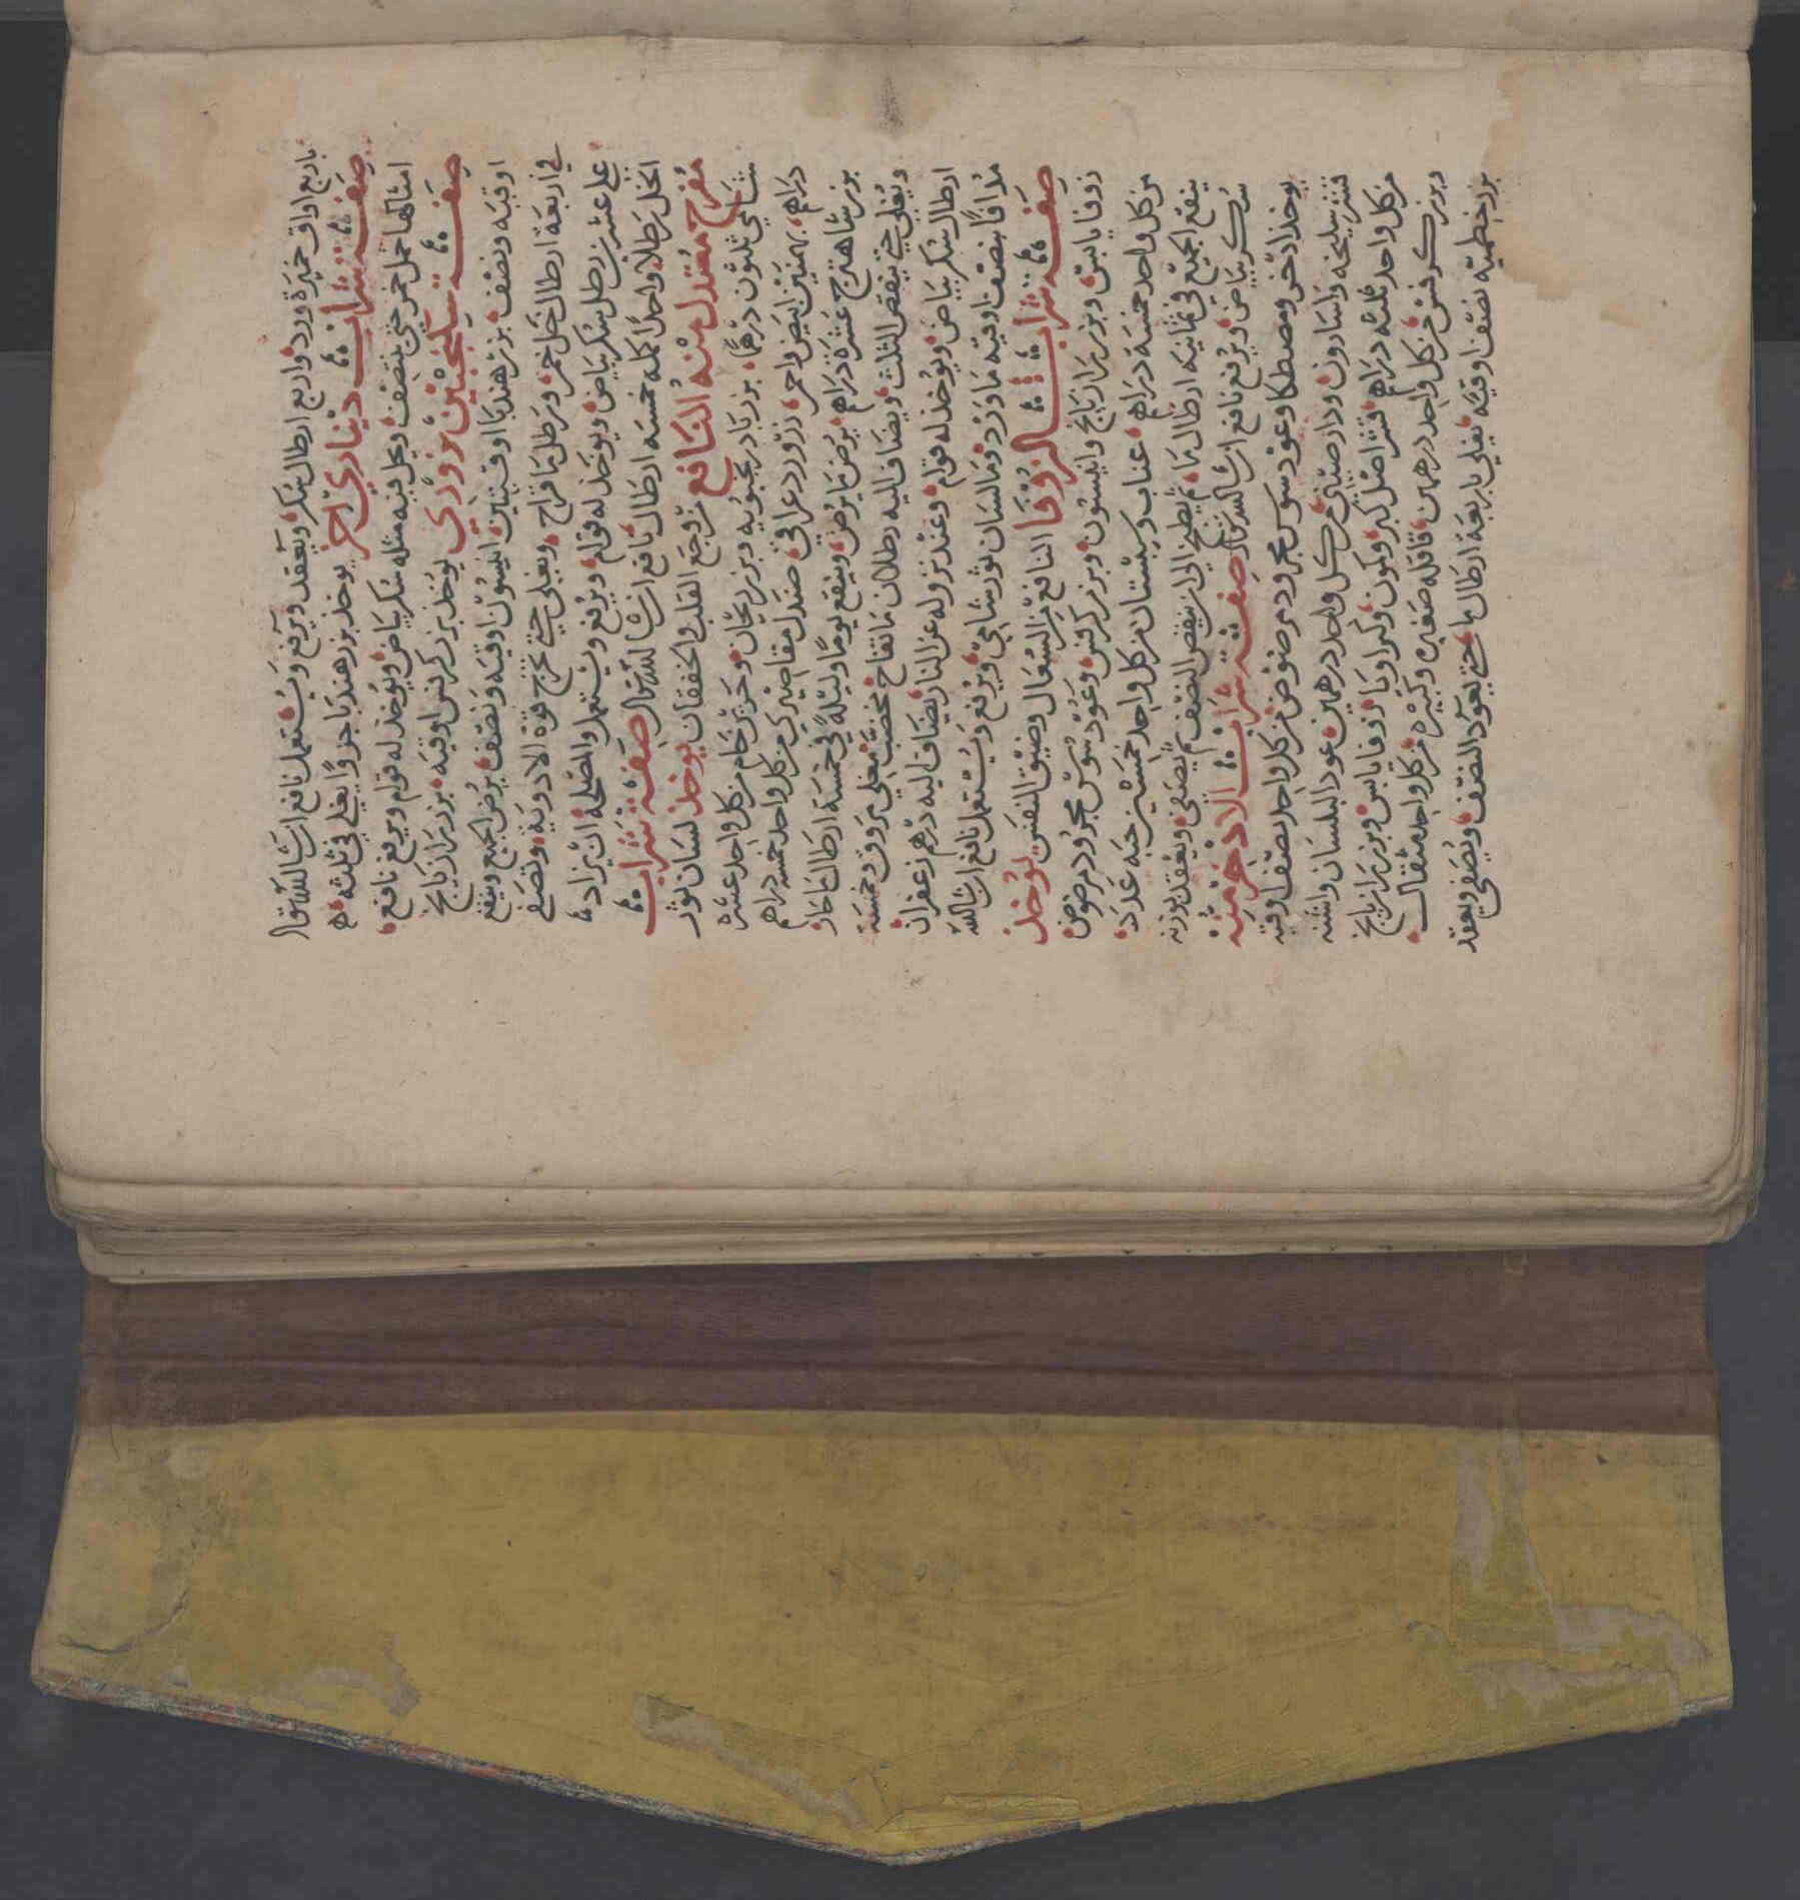 باربع اواق خميرة ورد واربع ارطال سكر ويعقد ويرفع ويستعمل نافع ان شا الله تعالى
صفة شراب ديناري اخر يوخذ بزر هندبا جزوا يغلي في ثلثه
امثالها خل خمر حتى ينتصف ويحل فيه مثله سكر بياض ويوخذ له قوام ويرفع نافع
صفة سكنجبين بزوري يوخذ بزر كرفس اوقيه بزر رازيانج
اوقيه ونصف بزر هندبا اوقيتين انيسون اوقيه ونصف يرض الجميع وينقع
في اربعة ارطال خل خمر ورطل ما قراح ويغلي حتى تخرج قوة الادوية وتصفي
علي عشرين رطل سكر بياض ويوخذ له قوام ويرفع ويستعمل واصلحه ان يزاد
الخل رطلا واحدا كله خمسه ارطال نافع ان شا الله تعالى صفة شراب
مفرح معتدل منه النافع من وجع القلب والخفقان يوخذ لسان ثور
شامي ثلثون درهما بزر بادرنجبويه وبزر ريحان وحرير خام من كل واحد عشره
دراهم بهمنين ابيض واحمر زر ورد عراقي صندل مقاصيري من كل واحد خمسه دراهم
بزر شاهترج عشرة دراهم يرض ما يرض وينقع يوما وليلة في خمسة ارطال ما حار
ويغلي حتى ينقص الثلث ويضاف اليه رطلان ما تفاح مخضب مغلي مروق وخمسة
ارطال سكر بياض ويوخذ له قوام وعند نزوله عن النار يضاف اليه درهم زعفران
مدافا بنصف اوقيه ماورد وما لسان ثور شامي ويرفع ويستعمل نافع ان شا الله
صفة شراب الزوفا النافع من السعال وضيق النفس يوخذ
زوفا يابس وبزر رازيانج وانيسون وبزر كرفس وعود سوس مجرود مرضوض
من كل واحد خمسة دراهم عناب وسبستان من كل واحد خمسين حبه عدد
ينقع الجميع في ثمانيه ارطال ما ثم يطبخ الي ان ينقص النصف ثم يصفي ويعقد بوزنه
سكر بياض ويرفع نافع ان شا الله تعالى صفة شراب الاذخر منه
يوخذ اذخر ومصطكا وعود سوس مجرود مرضوض من كل واحد نصف اوقيه
قشر سليخه واسارون ودارصيني من كل واحد درهمين عود البلسان واشنه
من كل واحد ثلثه دراهم قشر اصل كبر وكمون وكراويا وزوفا يابس وبزر رازيانج
وبزر كرفس من كل واحد درهمين قاقله صغيره وكبيره من كل واحد مثقال
بزر خطميه نصف اوقيه يغلي باربعة ارطال ما حتى يعود النصف ويصفي ويعقد